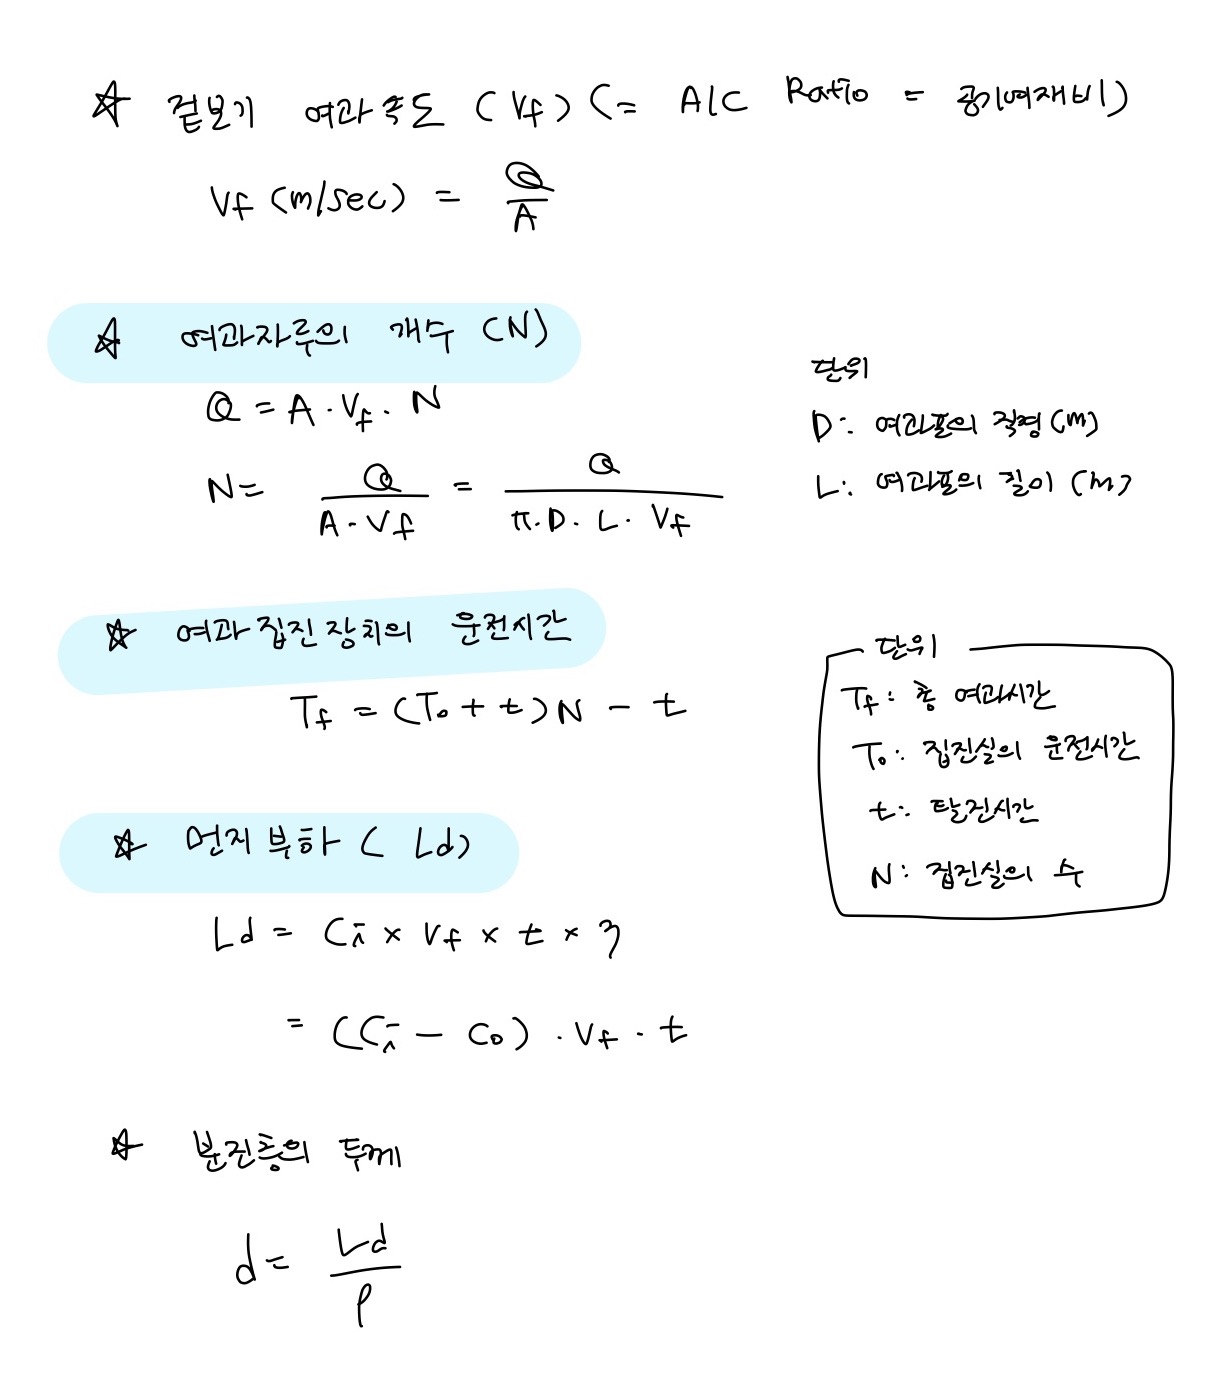 ☆ 겉보기 여과속도 (Vf) (= A/C Ratio = 공기여재비)
Vf (m/sec) = Q/A
☆ 여과자루의 개수 (N)
Q = A · Vf · N
N = Q/(A · Vf) = Q/(π · D · L · Vf)
단위
D : 여과포의 직경 (m)
L : 여과포의 길이 (m)
☆ 여과집진장치의 운전시간
Tf = (To + t)N - t
단위
Tf : 총 여과시간
To : 집진실의 운전시간
t : 탈진시간
N : 집진실의 수
☆ 먼지부하 (Ld)
Ld = Ci × Vf × t × η
= (Ci - Co) · Vf · t
☆ 분진층의 두께
d = Ld/ρ